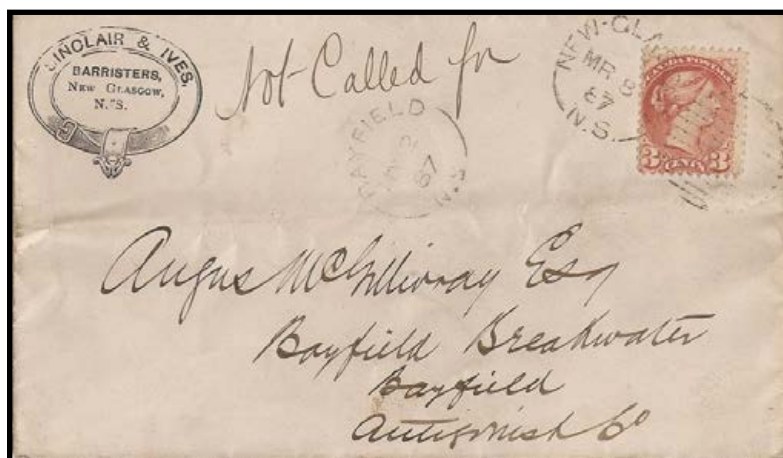 SINCLAIR & IVES,
BARRISTERS,
NEW GLASGOW,
N.S.
Not Called for
NEW-GLA
MR 8
87
N.S.
CANADA POSTAGE
3 CENTS 3
BAYFIELD
87
N.S.
Angus McGillivray Esq
Bayfield Breakwater
Bayfield
Antigonish Co